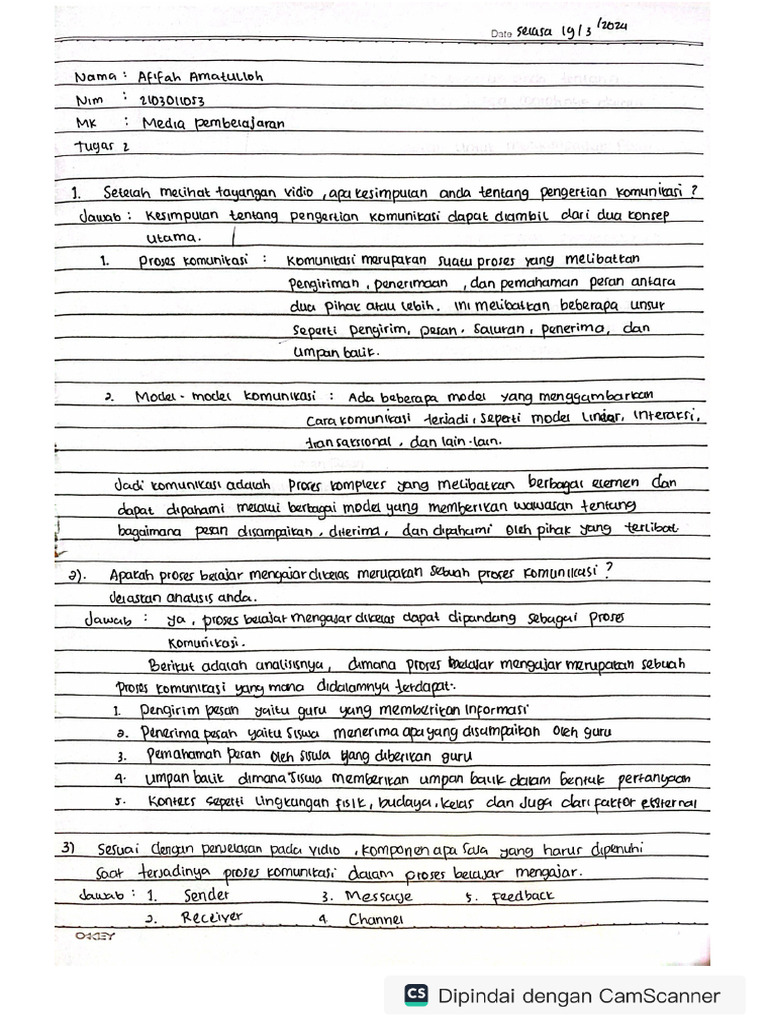 Date Selasa 19/3/2024
Nama : Afifah Amatulloh
Nim : 2103011053
MK : Media pembelajaran
Tugas 2
1. Setelah melihat tayangan vidio, apa kesimpulan anda tentang pengertian komunikasi ?
Jawab : Kesimpulan tentang pengertian komunikasi dapat diambil dari dua konsep
utama.
1. Proses komunikasi : Komunikasi merupakan suatu proses yang melibatkan
pengiriman, penerimaan, dan pemahaman pesan antara
dua pihak atau lebih. ini melibatkan beberapa unsur
seperti pengirim, pesan. saluran, penerima, dan
umpan balik.
2. Model-model komunikasi : Ada beberapa model yang menggambarkan
Cara komunikasi terjadi, seperti model linear, interaksi,
transaksional, dan lain-lain.
Jadi komunikasi adalah Proses kompleks yang melibatkan berbagai elemen dan
dapat dipahami melalui berbagai model yang memberikan wawasan tentang
bagaimana pesan disampaikan, diterima, dan dipahami oleh pihak yang terlibat
2). Apakah proses belajar mengajar dikelas merupakan sebuah proses komunikasi ?
Jelaskan analisis anda.
Jawab : ya, proses belajar mengajar dikelas dapat dipandang sebagai proses
komunikasi.
Berikut adalah analisisnya, dimana proses belajar mengajar merupakan sebuah
Proses komunikasi yang mana didalamnya terdapat:
1. Pengirim pesan yaitu guru yang memberikan informasi
2. Penerima pesan yaitu siswa menerima apa yang disampaikan oleh guru
3. Pemahaman pesan oleh siswa yang diberikan guru
4. Umpan balik dimana siswa memberikan umpan balik dalam bentuk pertanyaan
5. Konteks seperti lingkungan fisik, budaya, kelas dan juga dari faktor eksternal
3) Sesuai dengan penjelasan pada vidio, komponen apa saja yang harus dipenuhi
saat terjadinya proses komunikasi dalam proses belajar mengajar.
Jawab : 1. Sender 3. Message 5. Feedback
2. Receiver 4. Channel
OKEY
CS Dipindai dengan CamScanner